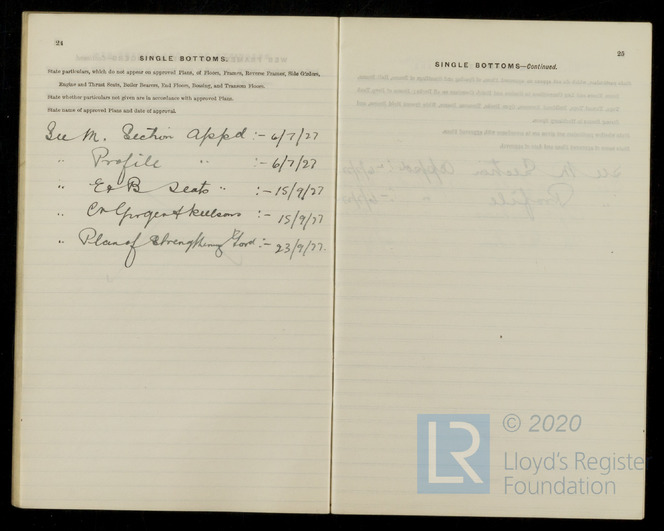 24
SINGLE BOTTOMS.
State particulars, which do not appear on approved Plans, of Floors, Frames, Reverse Frames, Side Girders,
Engine and Thrust Seats, Boiler Bearers, End Floors, Deadrise, and Transom Floors.
State whether particulars not given are in accordance with approved Plans.
State name of approved Plans and date of approval.
See M. Section Appd :- 6/7/27
" Profile " :- 6/7/27
" E & B Seats " :- 15/9/27
" & Keelsons :- 15/9/27
" Plan of Strengthening Ford :- 23/9/27.
25
SINGLE BOTTOMS—Continued.
LR
© 2020
Lloyd's Register
Foundation